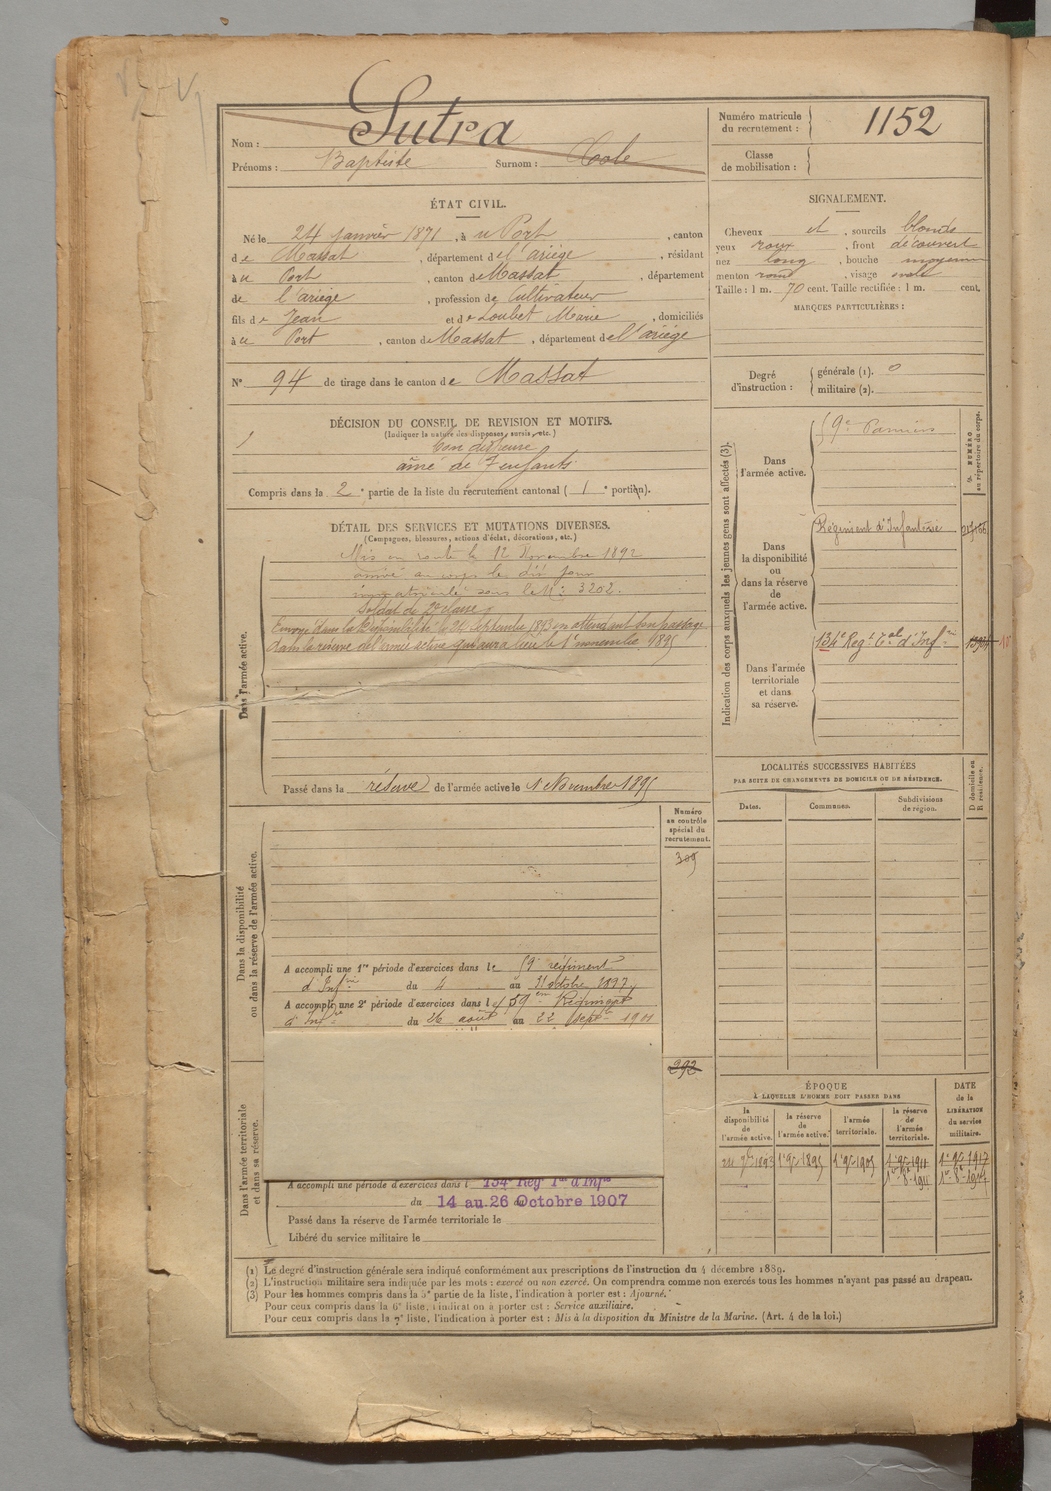 Nom : Sutra
Prénoms : Baptiste Surnom :
Numéro matricule du recrutement : 1152
Classe de mobilisation :
ÉTAT CIVIL.
Né le 24 janvier 1871, à u Port, canton
de Massat, département de l'ariège, résidant
à u Port, canton de Massat, département
de l'ariège, profession de Cultivateur
fils de Jean et de Loubet Marie, domiciliés
à u Port, canton de Massat, département de l'ariège
N° 94 de tirage dans le canton de Massat
SIGNALEMENT.
Cheveux et, sourcils blonds
yeux roux, front découvert
nez long, bouche moyenne
menton rond, visage ovale
Taille : 1 m. 70 cent. Taille rectifiée : 1 m. cent.
MARQUES PARTICULIÈRES :
Degré d'instruction : générale (1). 0
militaire (2).
DÉCISION DU CONSEIL DE REVISION ET MOTIFS.
(Indiquer la nature des dispenses, sursis, etc.)
aîné de 7 enfants
Compris dans la 2e partie de la liste du recrutement cantonal ( 1e portion).
DÉTAIL DES SERVICES ET MUTATIONS DIVERSES.
(Campagnes, blessures, actions d'éclat, décorations, etc.)
Dans l'armée active.
Mis en route le 12 Novembre 1892
arrivé au corps le dit jour
immatriculé sous le N° : 3202.
Soldat de 2e classe
Envoyé dans la Disponibilité le 24 Septembre 1893 en attendant son passage
dans la réserve de l'armée active qui aura lieu le 1er novembre 1895
Passé dans la réserve de l'armée active le 1 Novembre 1895
Indication des corps auxquels les jeunes gens sont affectés (3).
NUMÉRO au répertoire du corps.
Dans l'armée active.
59e Pamiers
Dans la disponibilité ou dans la réserve de l'armée active.
Régiment d'Infanterie
Dans l'armée territoriale et dans sa réserve.
134e Regt Eal d'Infie
LOCALITÉS SUCCESSIVES HABITÉES
PAR SUITE DE CHANGEMENTS DE DOMICILE OU DE RÉSIDENCE.
Dates. Communes. Subdivisions de région. D domicile ou R résidence.
Numéro au contrôle spécial du recrutement.
309
Dans la disponibilité ou dans la réserve de l'armée active.
A accompli une 1re période d'exercices dans le 59e régiment
d'Infie du 4 au 31 octobre 1897
A accompli une 2e période d'exercices dans le 59em Régiment
d'Infie du 26 août au 22 Septre 1901
292
Dans l'armée territoriale et dans sa réserve.
A accompli une période d'exercices dans l 134e Reg Tal d'Infie
du 14 au 26 Octobre 1907
Passé dans la réserve de l'armée territoriale le
Libéré du service militaire le
ÉPOQUE
A LAQUELLE L'HOMME DOIT PASSER DANS
la disponibilité de l'armée active. la réserve de l'armée active. l'armée territoriale. la réserve de l'armée territoriale.
DATE de la LIBÉRATION du service militaire.
24 7bre 1893 1er 9bre 1895 1er 9bre 1905 1er 9bre 1911 1er 9bre 1917
(1) Le degré d'instruction générale sera indiqué conformément aux prescriptions de l'instruction du 4 décembre 1889.
(2) L'instruction militaire sera indiquée par les mots : exercé ou non exercé. On comprendra comme non exercés tous les hommes n'ayant pas passé au drapeau.
(3) Pour les hommes compris dans la 5e partie de la liste, l'indication à porter est : Ajourné.
Pour ceux compris dans la 6e liste, l'indication à porter est : Service auxiliaire.
Pour ceux compris dans la 7e liste, l'indication à porter est : Mis à la disposition du Ministre de la Marine. (Art. 4 de la loi.)